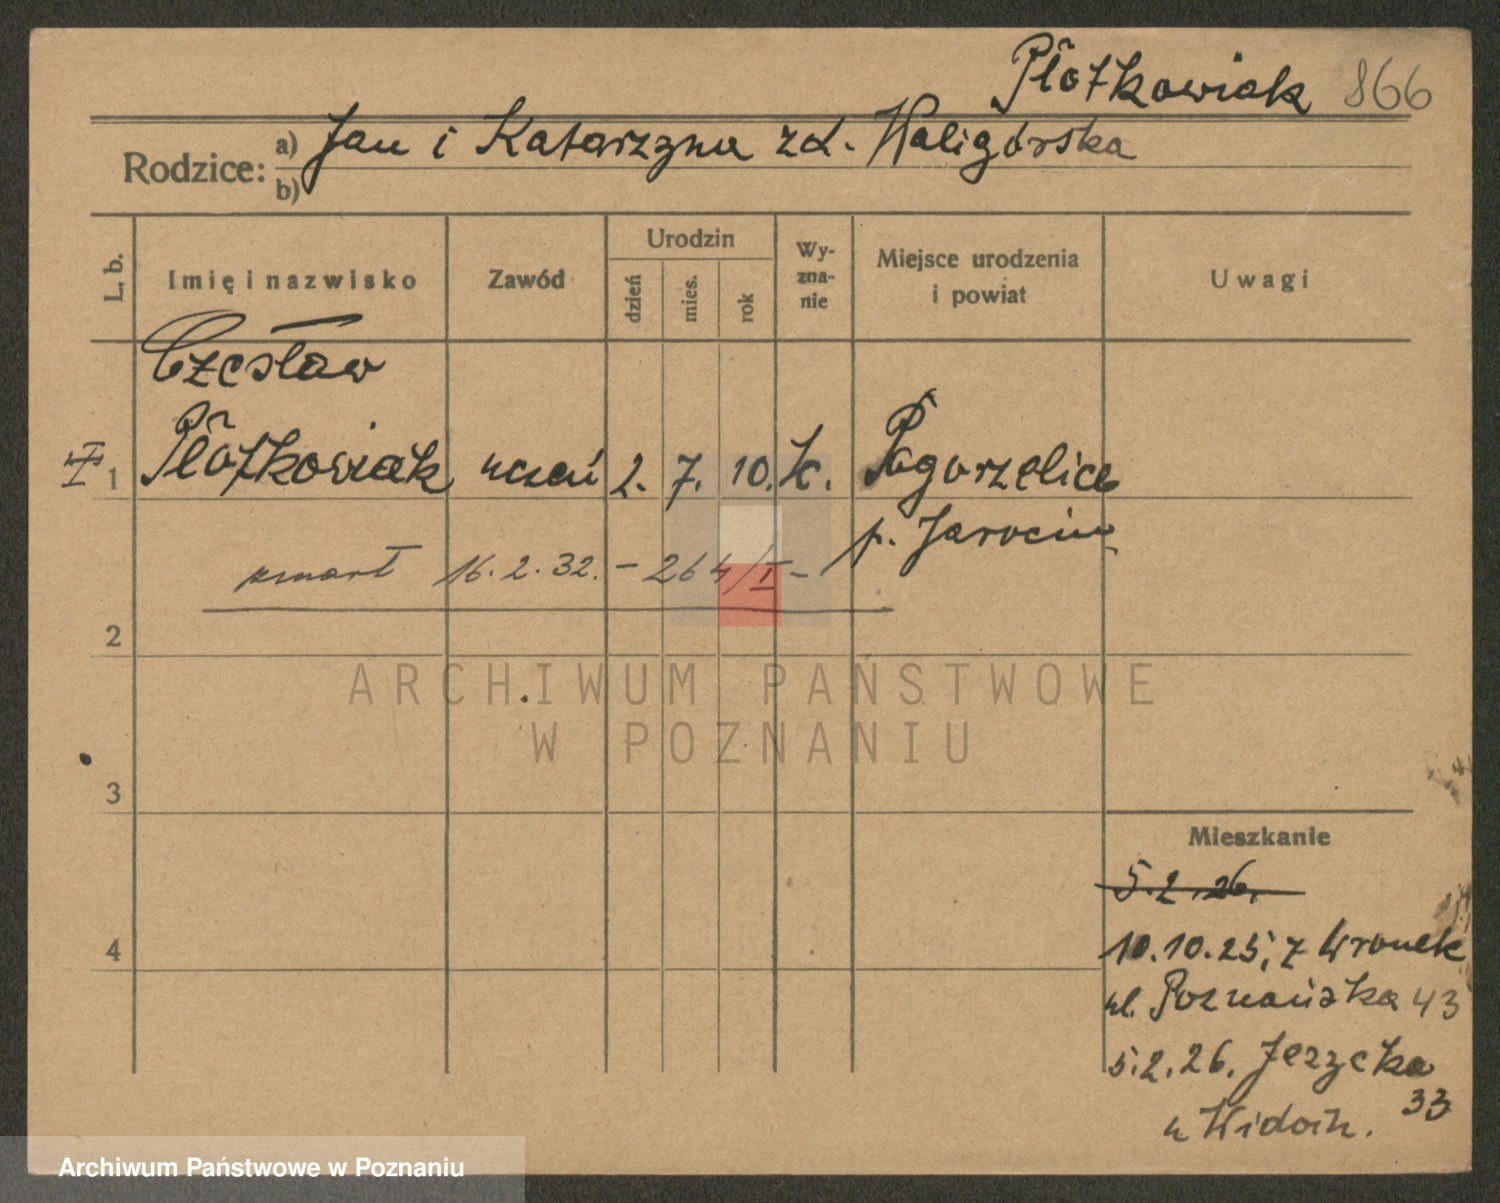 Płotkowiak 866
Rodzice: a) Jan i Katarzyna zd. Waligórska
b)
L. b. Imię i nazwisko Zawód Urodzin dzień mies. rok Wy-zna-nie Miejsce urodzenia i powiat Uwagi
Czesław
1 Płotkowiak uczeń 2. 7. 10. k. Pogorzelice
p. Jarocin
zmarł 16.2.32. – 264/I –
2
ARCHIWUM PAŃSTWOWE
W POZNANIU
3
Mieszkanie
5.2.26.
4
10.10.25, z Wronek
ul. Poznańska 43
5.2.26. Jeżycka
33
u
Archiwum Państwowe w Poznaniu